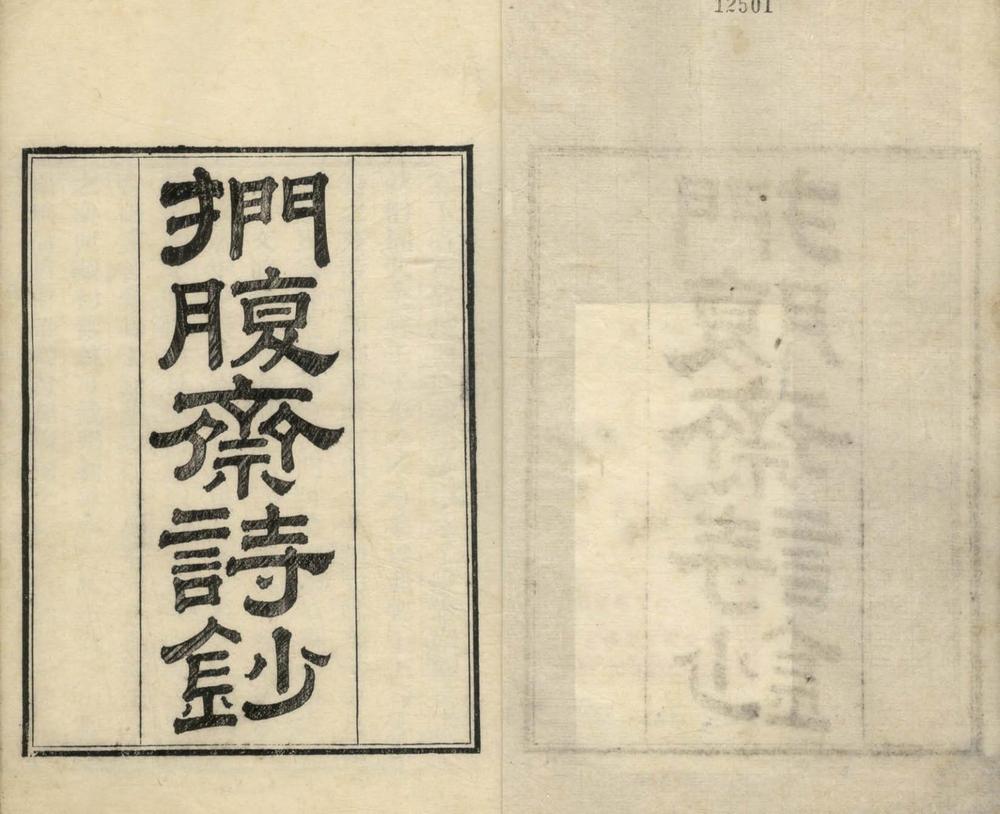 捫腹齋詩鈔
12501